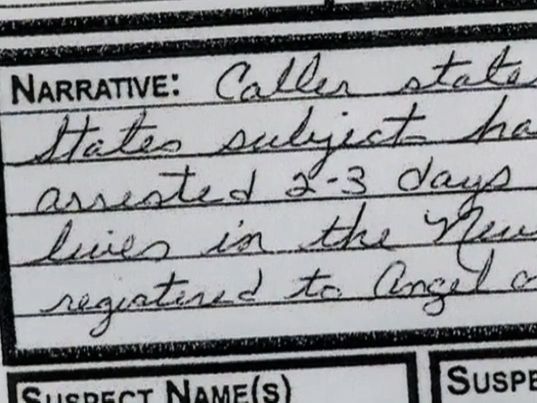 NARRATIVE: Caller state
States subject ha
arrested 2-3 days
lives in the New
registered to Angel o
SUSPECT NAME(S)
SUSPE